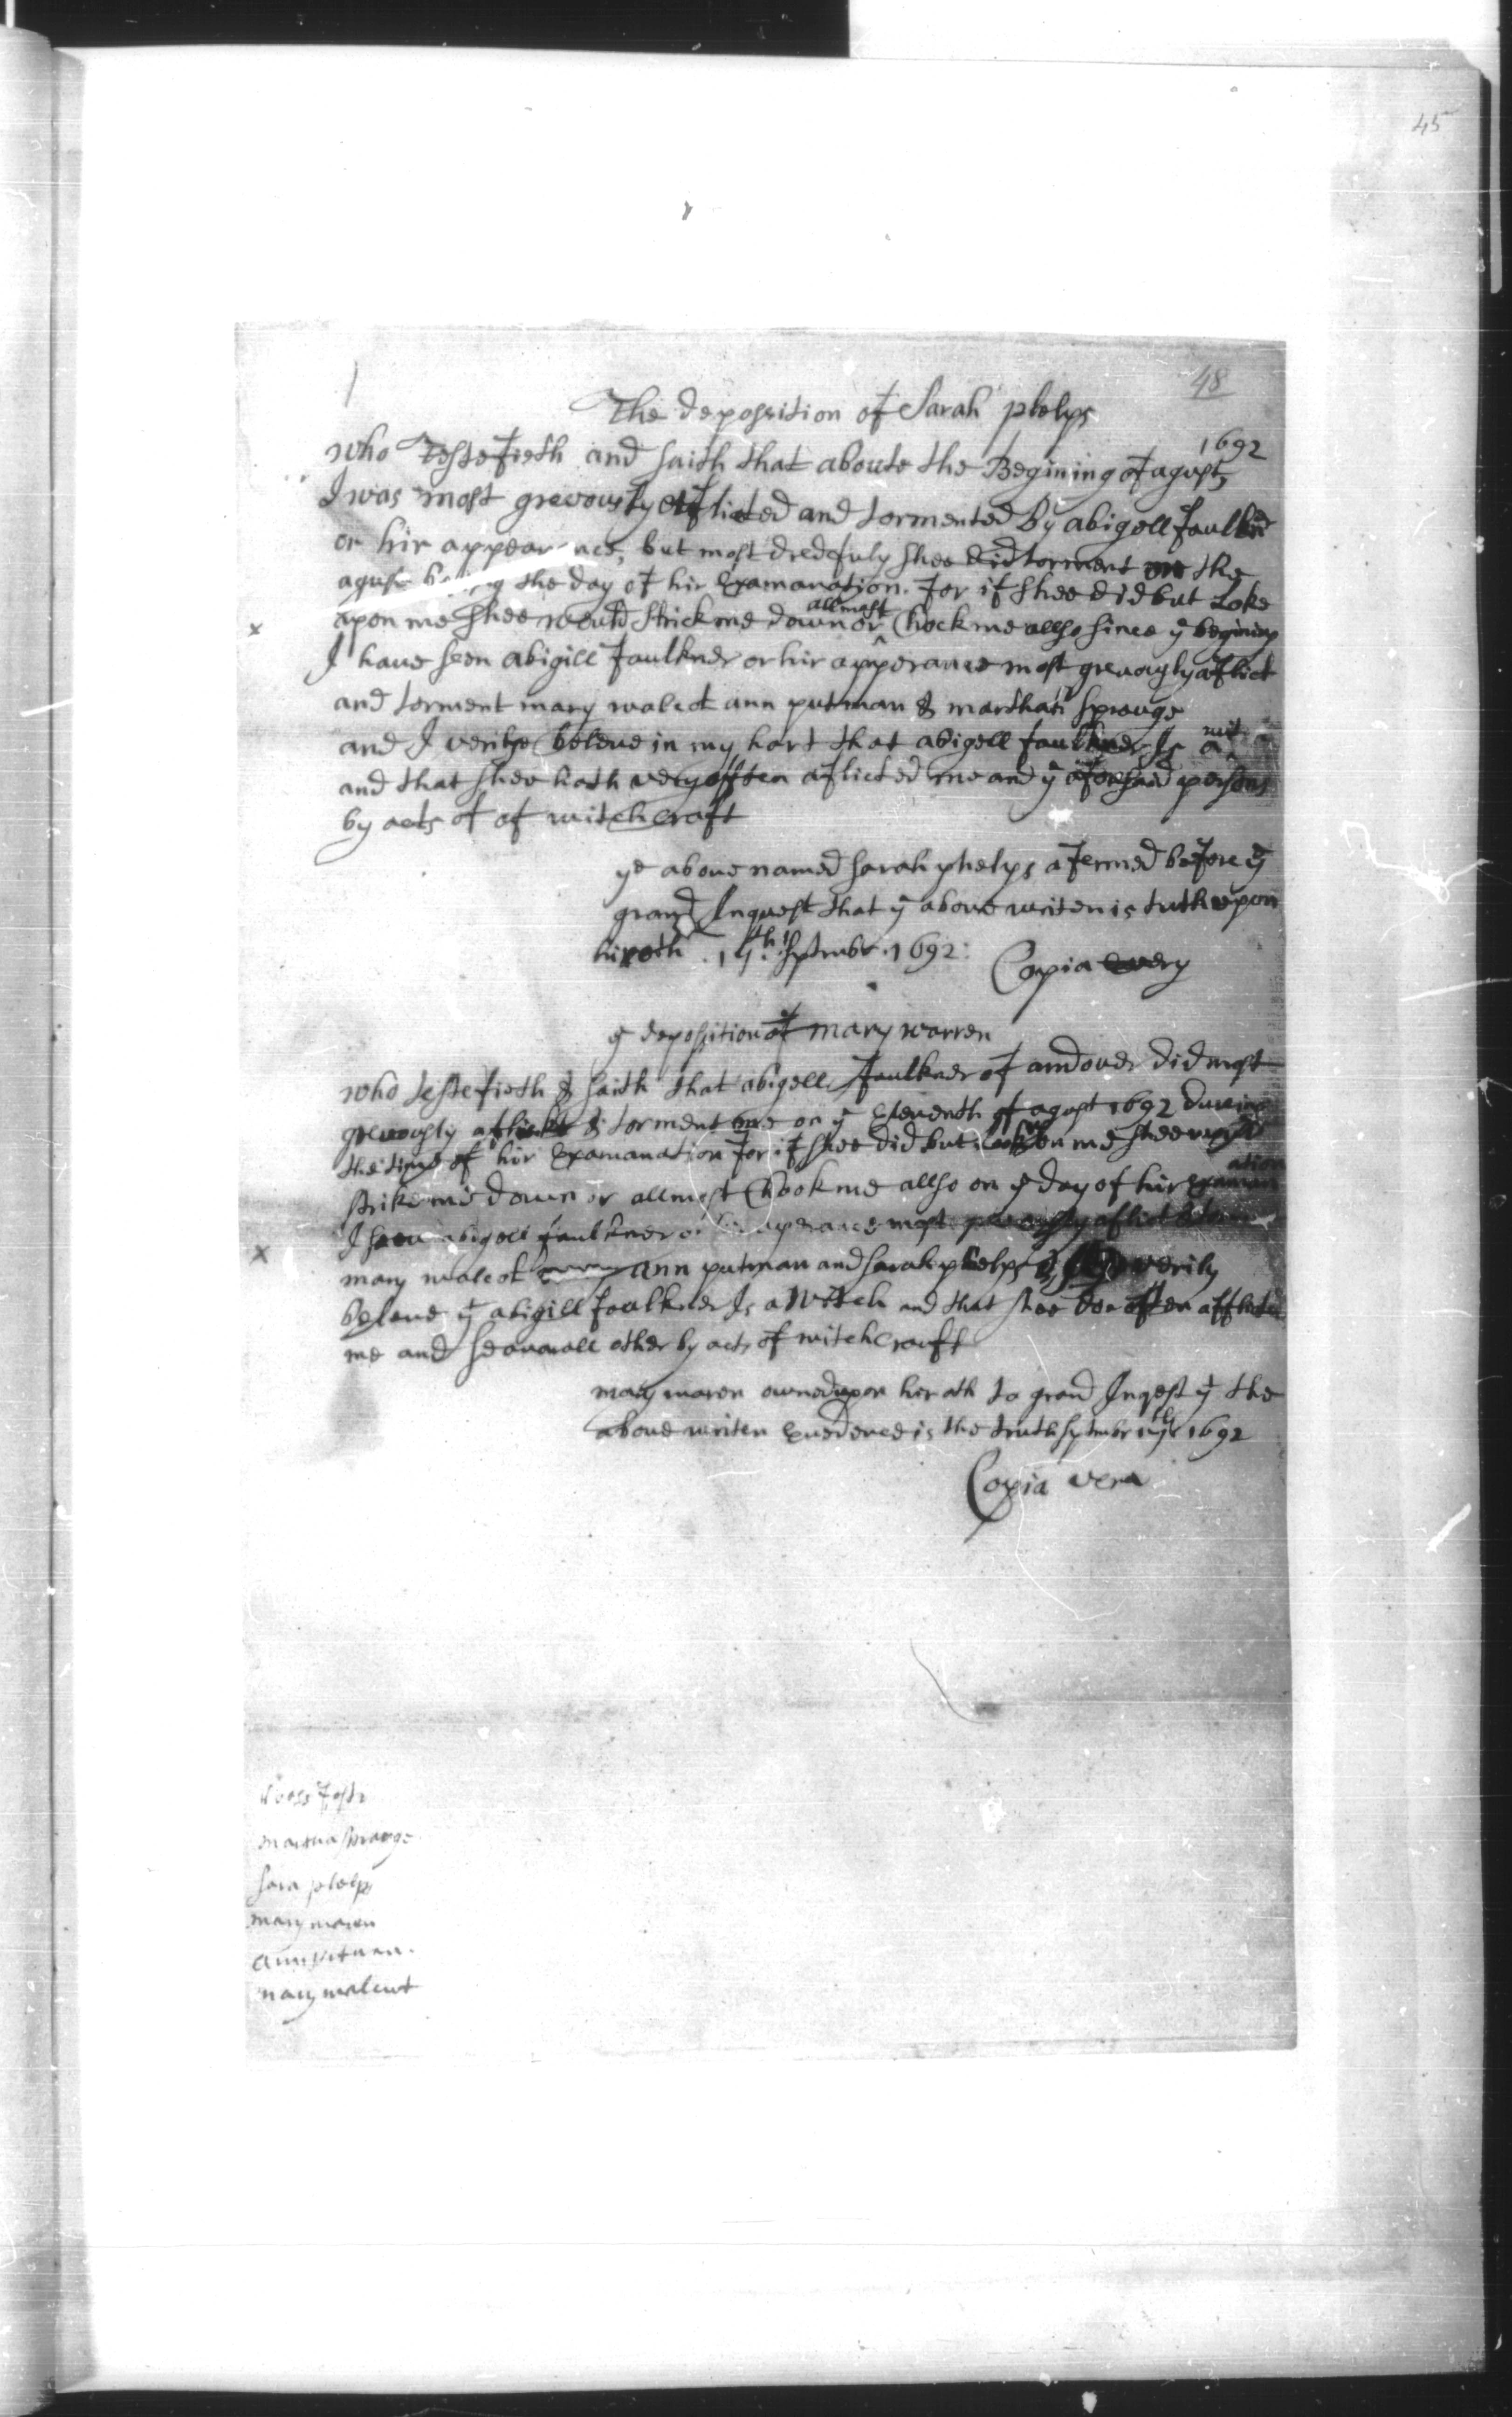 45
48
The deposition of Sarah phelps
who Testefieth and saith that aboute the Begining of agust, 1692
I was most grevously aflicted and tormented By abigell Faulkn
or hir appearance, but most dredefuly shee did torment me the
agust being the day of hir Examanation. For if shee did but Loke
apon me shee would strick me down or allmost Chock me allso since ye begining
I have seen abigill Faulkner or hir apperance most grevously aflict
and torment mary walcot ann putman & marthah sprouge
and I verily beleve in my hart that abigell faulkner Is a wit
and that shee hath very often aflicted me and ye aforsaid persons
by acts of of witchcraft
ye above named sarah phelps afermed before ye
grand Inquest that ye above writen is truth upon
hir oth. 17th. Septembr. 1692:
Copia very
ye deposition of mary warren
who testefieth & saith that abigell Faulkner of andover did most
grevously aflickt & torment me on ye Eleventh of agust 1692 dureing
the time of hir Examanation For if shee did but look on me shee would
strike me down or allmost Chook me allso on ye day of hir examanation
I seen abigell faulkner or hir aperance most grevously aflict & torm
mary walcot ann putman and sarah phelps & verily
beleve yt abigill Faulkner Is a Witch and that shee has often afflicted
me and severall other by acts of witchcrauft
mary waren owned upon hir oth to grand Inqest yt the
above writen Evedence is the truth Septmbr 17th 1692
Copia vera
Rose Fostr
martha sprauge
sara phelps
mary waren
ann putman.
mary walcut